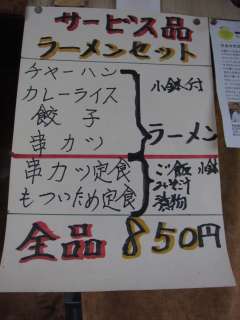 サービス品
ラーメンセット
チャーハン
カレーライス
餃子
串カツ
小鉢付
ラーメン
串カツ定食
もついため定食
ご飯 小鉢
みそ汁
漬物
全品 850円